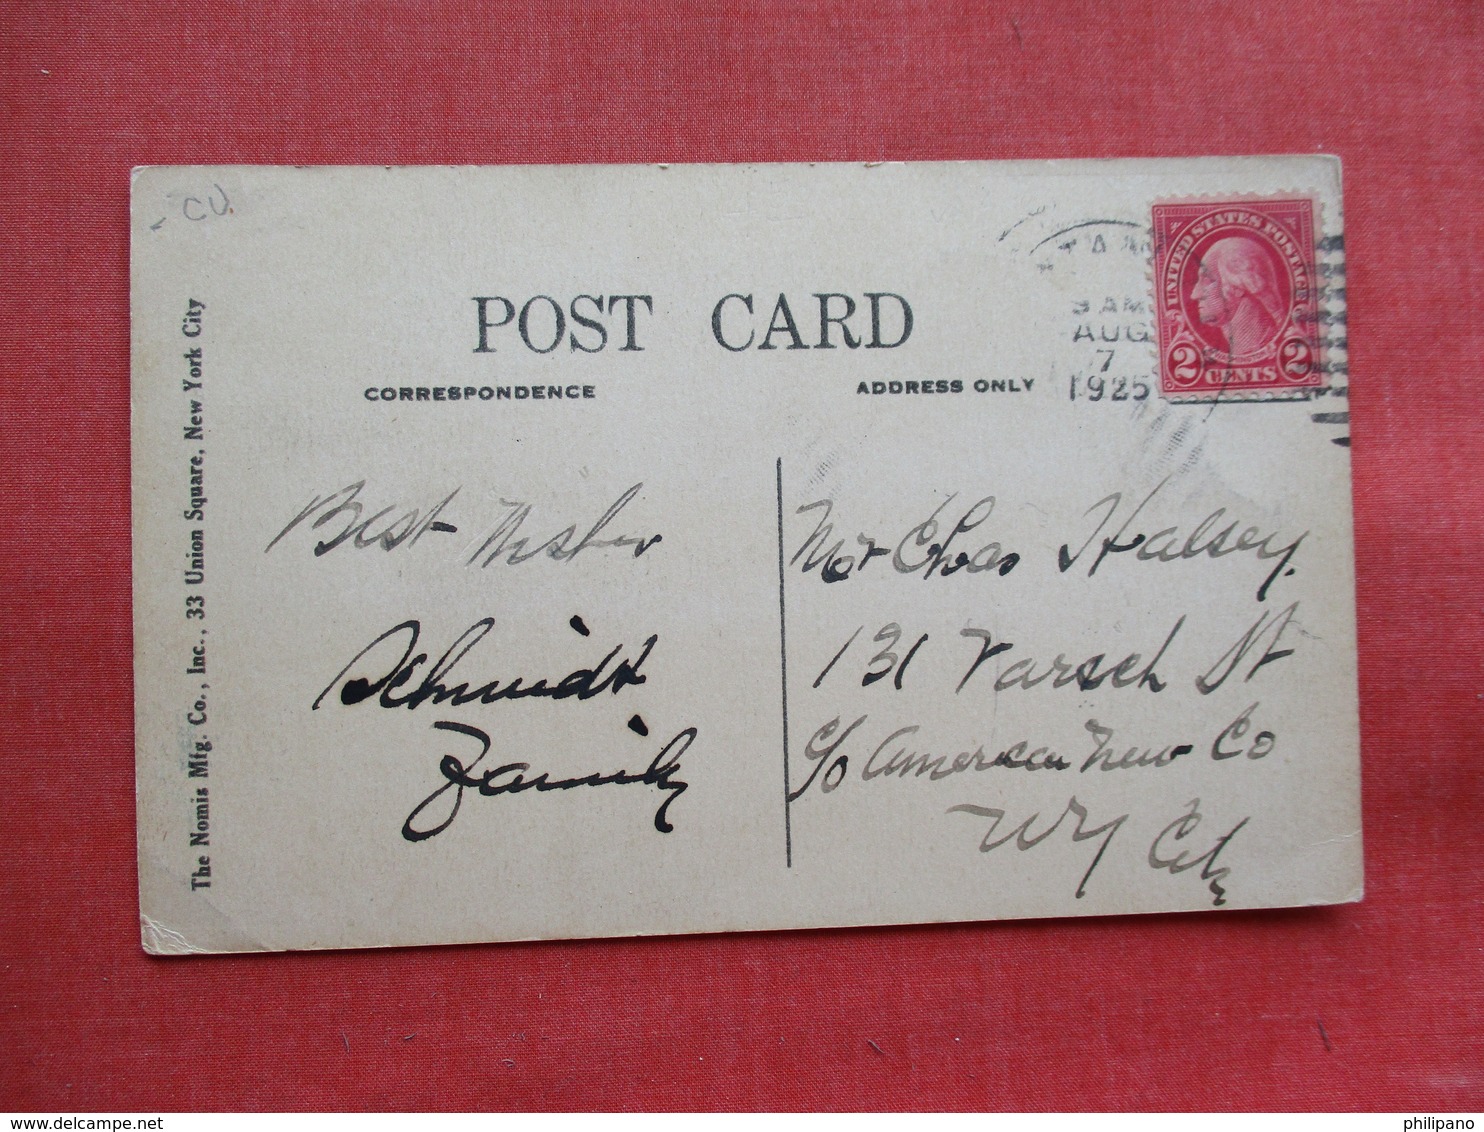 CU
POST CARD
CORRESPONDENCE
ADDRESS ONLY
9 AM
AUG
7
1925
UNITED STATES POSTAGE
2 CENTS 2
The Nomis Mfg. Co., Inc., 33 Union Square, New York City
Best Wishes
Schmidt
Family
Mr Chas Halsey.
131 Varick St
c/o American News Co
NY City
delcampe.net
philipano